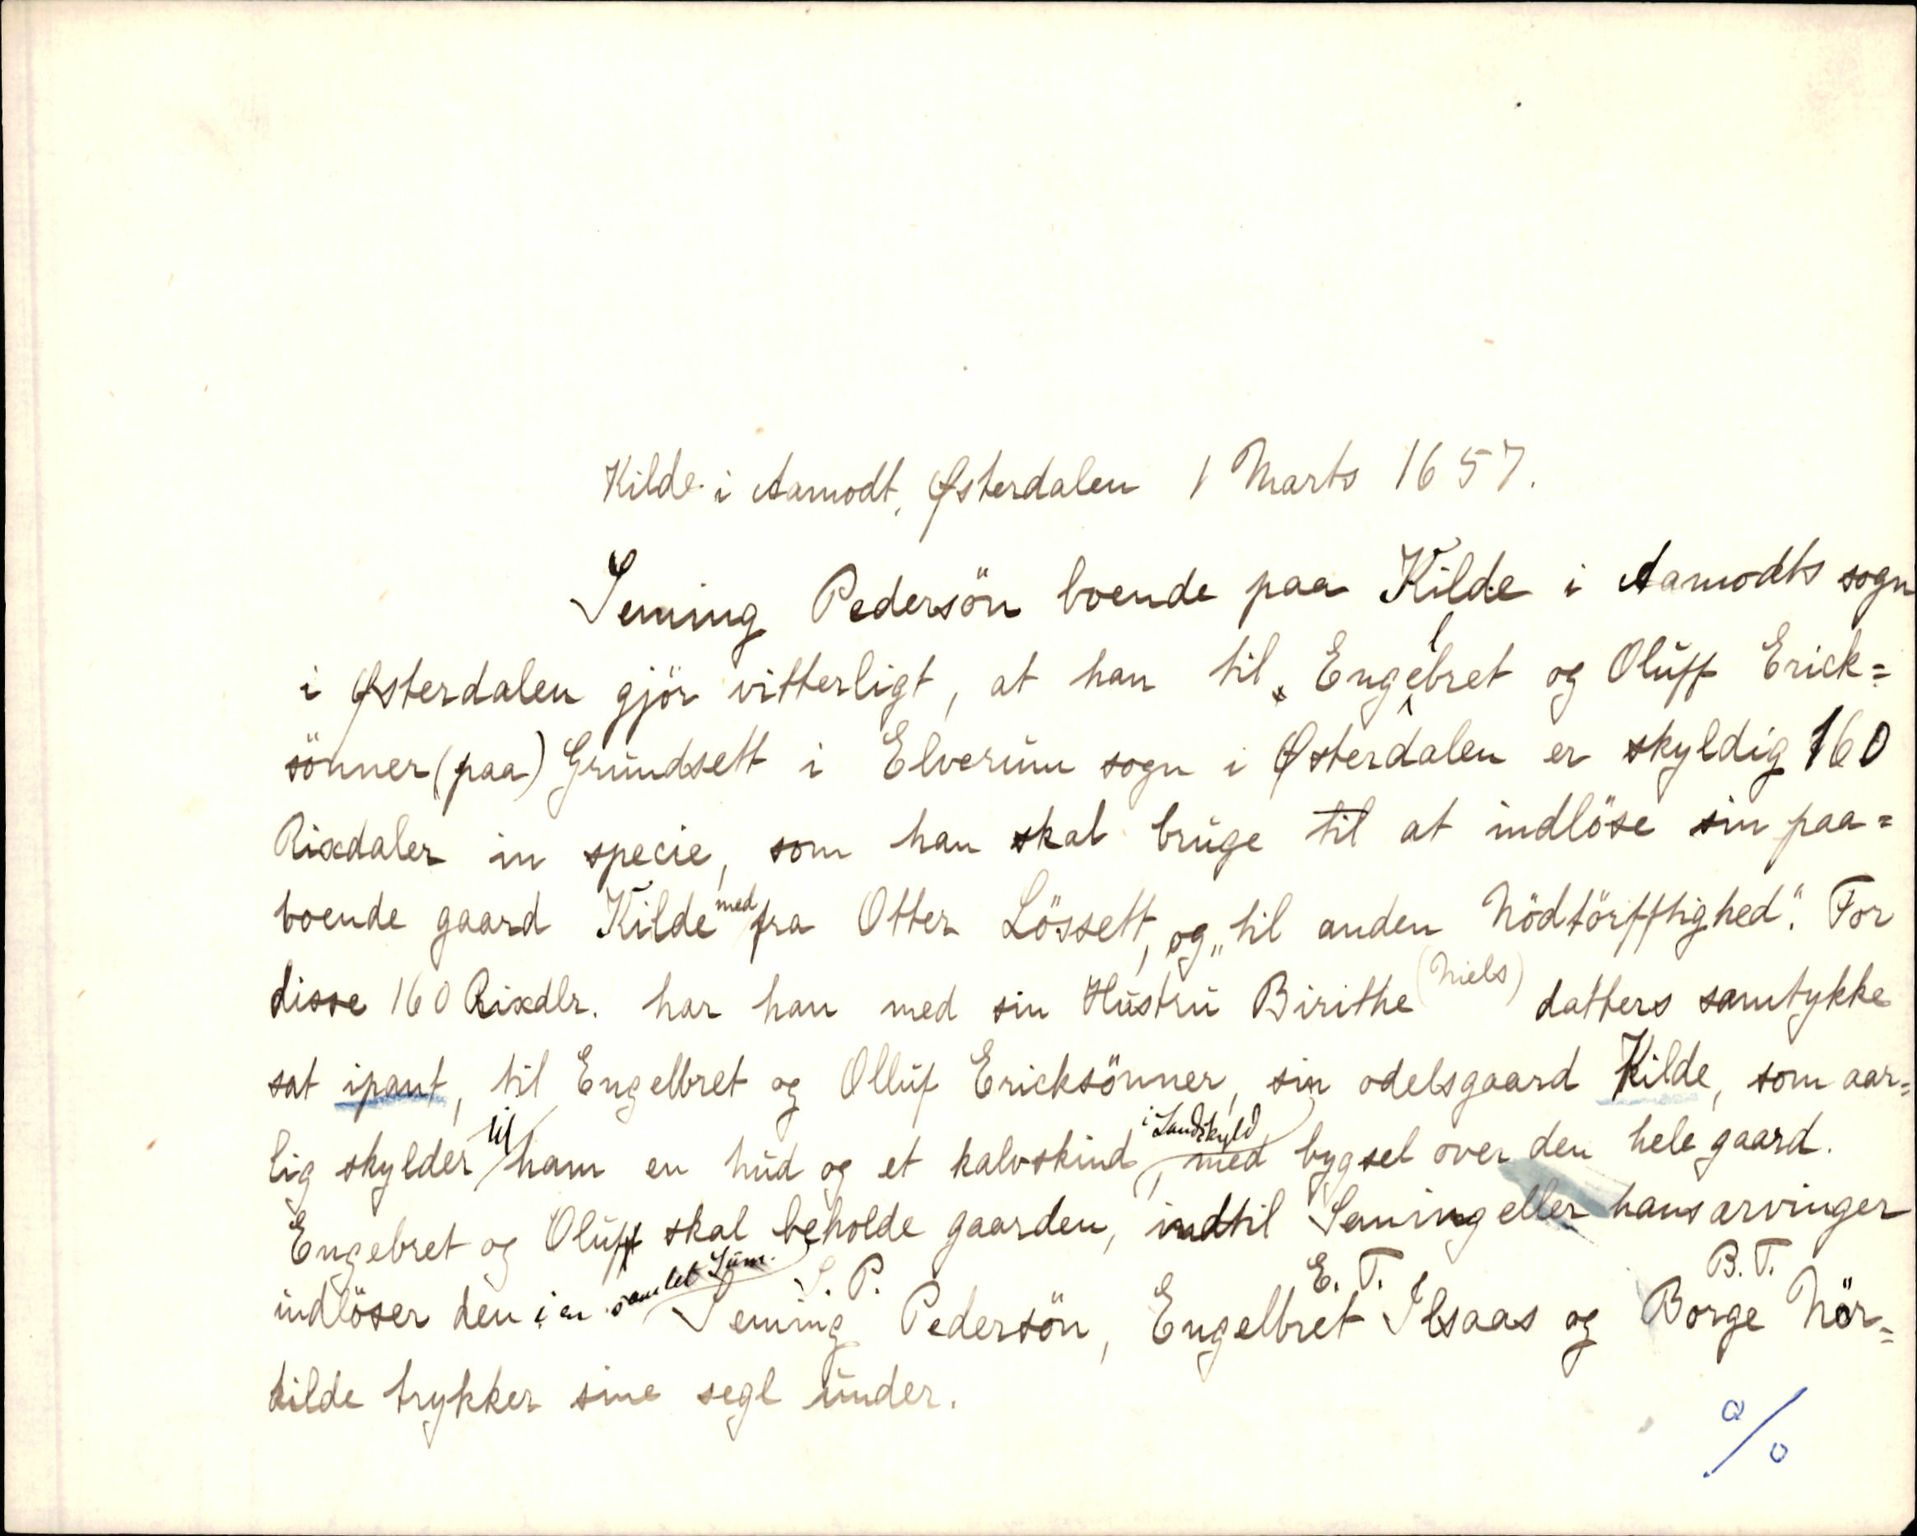 Kilde i Aamodt, Østerdalen 1 Marts 1657.
Seming Pedersön boende paa Kilde i Aamodts sogn
i Østerdalen gjör vitterligt, at han til Engelbret og Oluff Erick=
sönner (paa) Grundsett i Elverum sogn i Østerdalen er skyldig 160
Rixdaler in specie, som han skal bruge til at indlöse sin paa=
boende gaard Kilde med fra Otter Lössett, og „til anden Nödtörfftighed“. For
disse 160 Rixdlr. har han med sin Hustru Birithe (Niels) datters samtykke
sat ipant, til Engelbret og Olluf Ericksönner, sin odelsgaard Kilde, som aar=
lig skylder til ham en hud og et kalvskind i Landskyld, med bygsel over den hele gaard.
Engebret og Oluff skal beholde gaarden, indtil Seming eller hans arvinger
indlöser den i en samlet Sum. S. P. E. T. B. T.
Seming Pedersön, Engelbret Ilsaas og Borge Nör=
kilde trykker sine segl under.
%